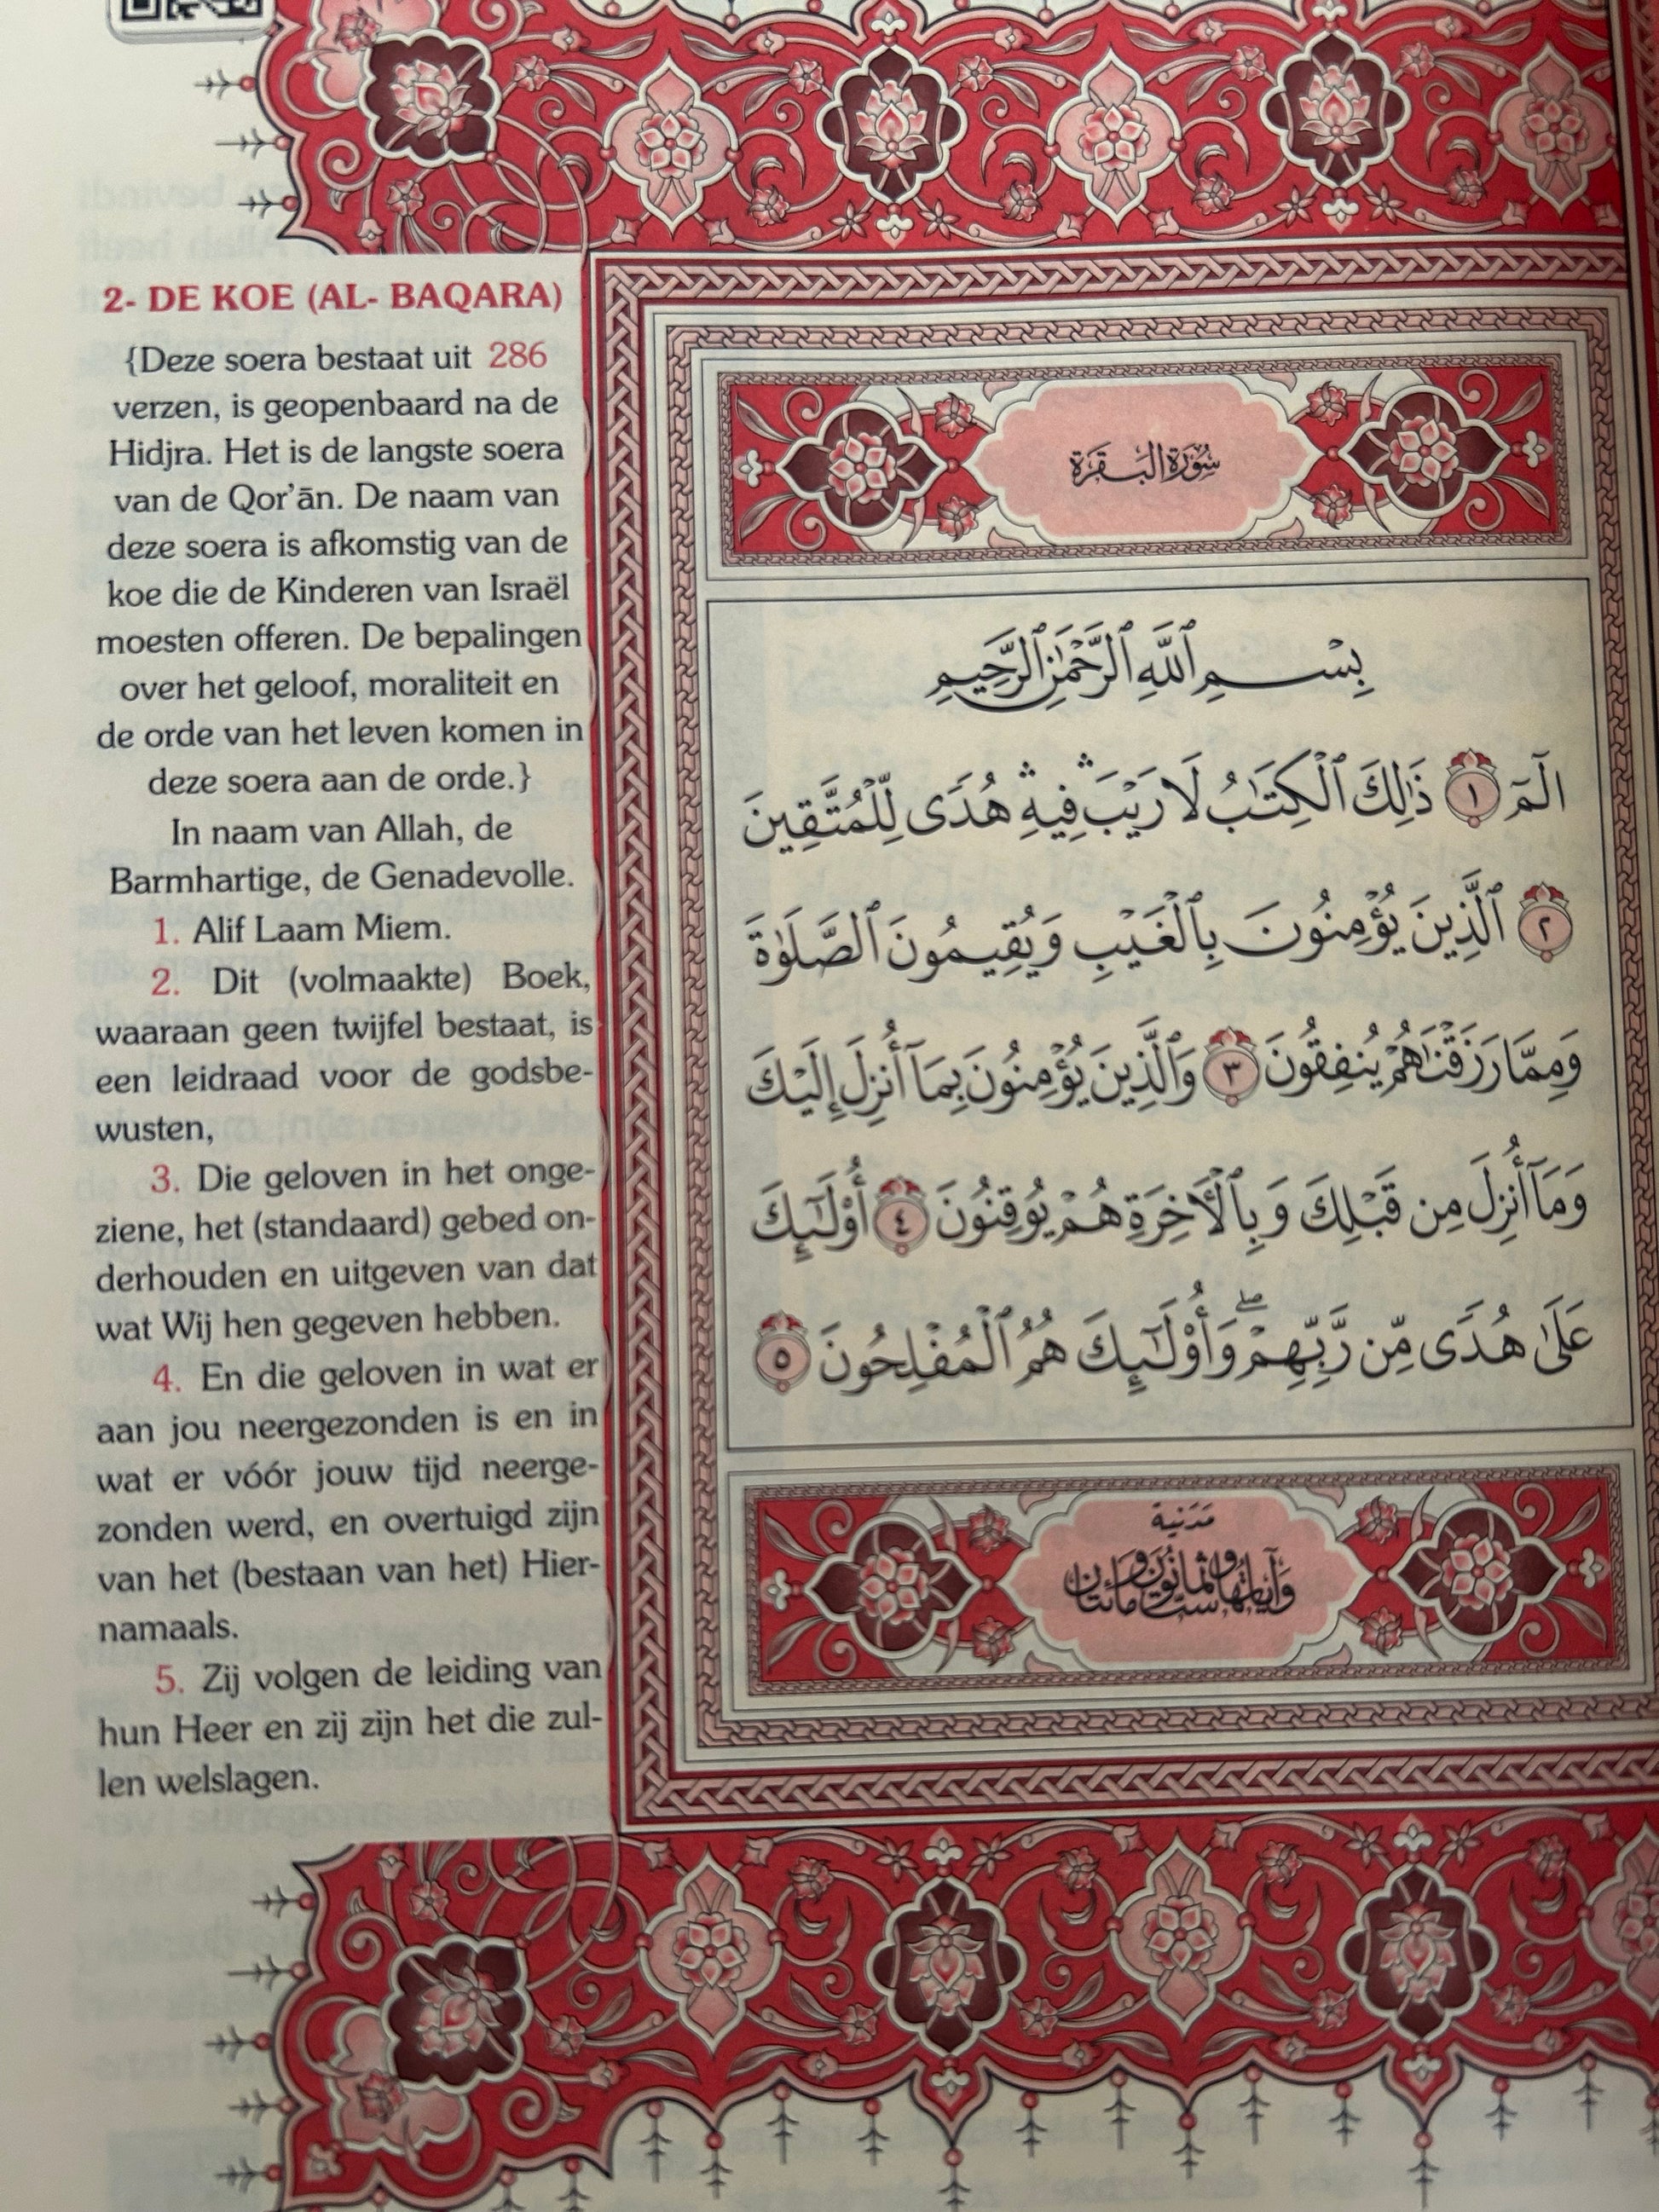 2- DE KOE (AL- BAQARA)
{Deze soera bestaat uit 286
verzen, is geopenbaard na de
Hidjra. Het is de langste soera
van de Qor’ān. De naam van
deze soera is afkomstig van de
koe die de Kinderen van Israël
moesten offeren. De bepalingen
over het geloof, moraliteit en
de orde van het leven komen in
deze soera aan de orde.}
In naam van Allah, de
Barmhartige, de Genadevolle.
1. Alif Laam Miem.
2. Dit (volmaakte) Boek,
waaraan geen twijfel bestaat, is
een leidraad voor de godsbe-
wusten,
3. Die geloven in het onge-
ziene, het (standaard) gebed on-
derhouden en uitgeven van dat
wat Wij hen gegeven hebben.
4. En die geloven in wat er
aan jou neergezonden is en in
wat er vóór jouw tijd neerge-
zonden werd, en overtuigd zijn
van het (bestaan van het) Hier-
namaals.
5. Zij volgen de leiding van
hun Heer en zij zijn het die zul-
len welslagen.
سُوْرَةُ الْبَقَرَةِ
بِسْمِ ٱللَّهِ ٱلرَّحْمَٰنِ ٱلرَّحِيمِ
الٓمٓ ١ ذَٰلِكَ ٱلْكِتَٰبُ لَا رَيْبَ ۛ فِيهِ ۛ هُدًى لِّلْمُتَّقِينَ
٢ ٱلَّذِينَ يُؤْمِنُونَ بِٱلْغَيْبِ وَيُقِيمُونَ ٱلصَّلَوٰةَ
وَمِمَّا رَزَقْنَٰهُمْ يُنفِقُونَ ٣ وَٱلَّذِينَ يُؤْمِنُونَ بِمَآ أُنزِلَ إِلَيْكَ
وَمَآ أُنزِلَ مِن قَبْلِكَ وَبِٱلْأَخِرَةِ هُمْ يُوقِنُونَ ٤ أُو۟لَٰٓئِكَ
عَلَىٰ هُدًى مِّن رَّبِّهِمْ ۖ وَأُو۟لَٰٓئِكَ هُمُ ٱلْمُفْلِحُونَ ٥
مَدَنِيَّة
وَآيَاتُهَا سِتٌّ وَثَمَانُونَ وَمِائَتَانِ